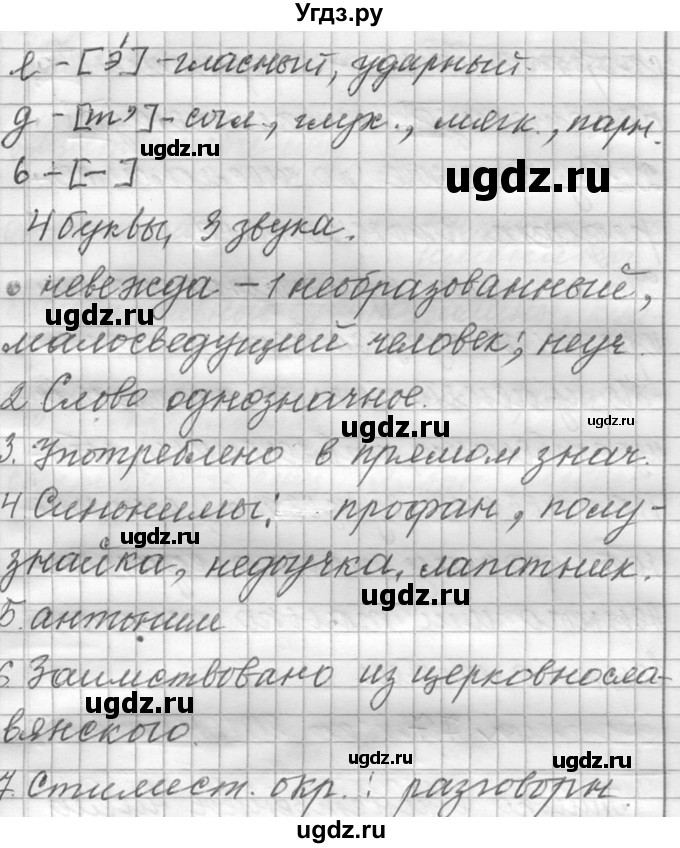 Угдз.ру
е - [э́] - гласный, ударный.
д - [т'] - согл., глух., мягк., парн.
ugdz.ru
ugdz.ru
ь - [-]
4 буквы, 3 звука.
невежда - 1 необразованный,
ugdz.ru
малосведущий человек; неуч.
2 Слово однозначное.
ugdz.ru
ugdz.ru
3. Употреблено в прямом знач.
4 Синонимы: профан, полу-
ugdz.ru
знайка, недоучка, лапотник.
ugdz.ru
5. антоним
6 Заимствовано из церковносла-
ugdz.ru
вянского.
ugdz.ru
ugdz.ru
7. Стилист. окр.: разговорн
ugdz.ru